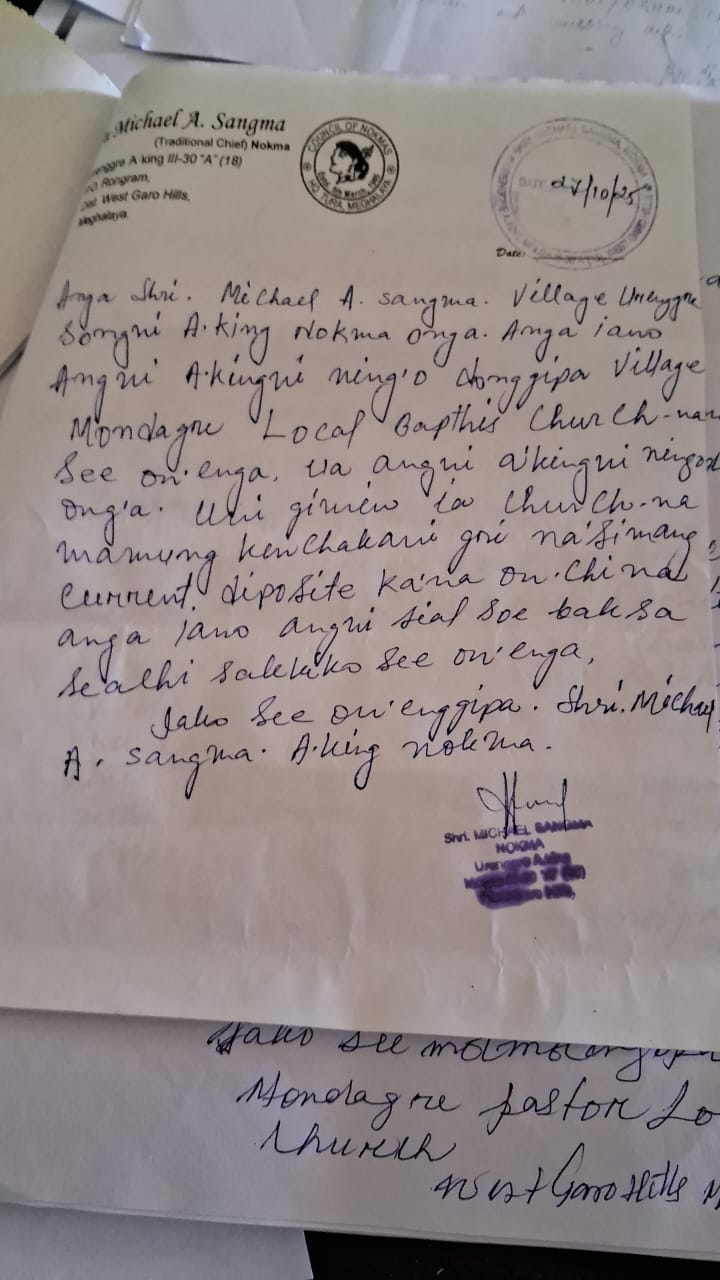 Michael A. Sangma
(Traditional Chief) Nokma
A·king III-30 "A" (18)
Rongram,
West Garo Hills,
Meghalaya.
COUNCIL OF NOKMAS
HQ. TURA, MEGHALAYA
DATE 27/10/25
Date:
Anga Shri. Michael A. Sangma. Village Urenggre
Songni A·king Nokma onga. Anga iano
Angni A·kingni ning'o donggipa Village
Mondagre Local Bapthis Church-na
See on'enga, ua angni a'kingni ningo
ong'a. Uni gimin ia Church-na
mamung kenchakani gri na'simang
Current, diposite ka'na on·china
anga iano angni sial soe baksa
sealhi sakkiko see on'enga,
Iako See on'enggipa. Shri. Michael
A. Sangma. A·king nokma.
Shri. MICHAEL SANGMA
NOKMA
Urenggre A·king
Iako see
Mondagre pastor Lo
Church
West Garo Hills M